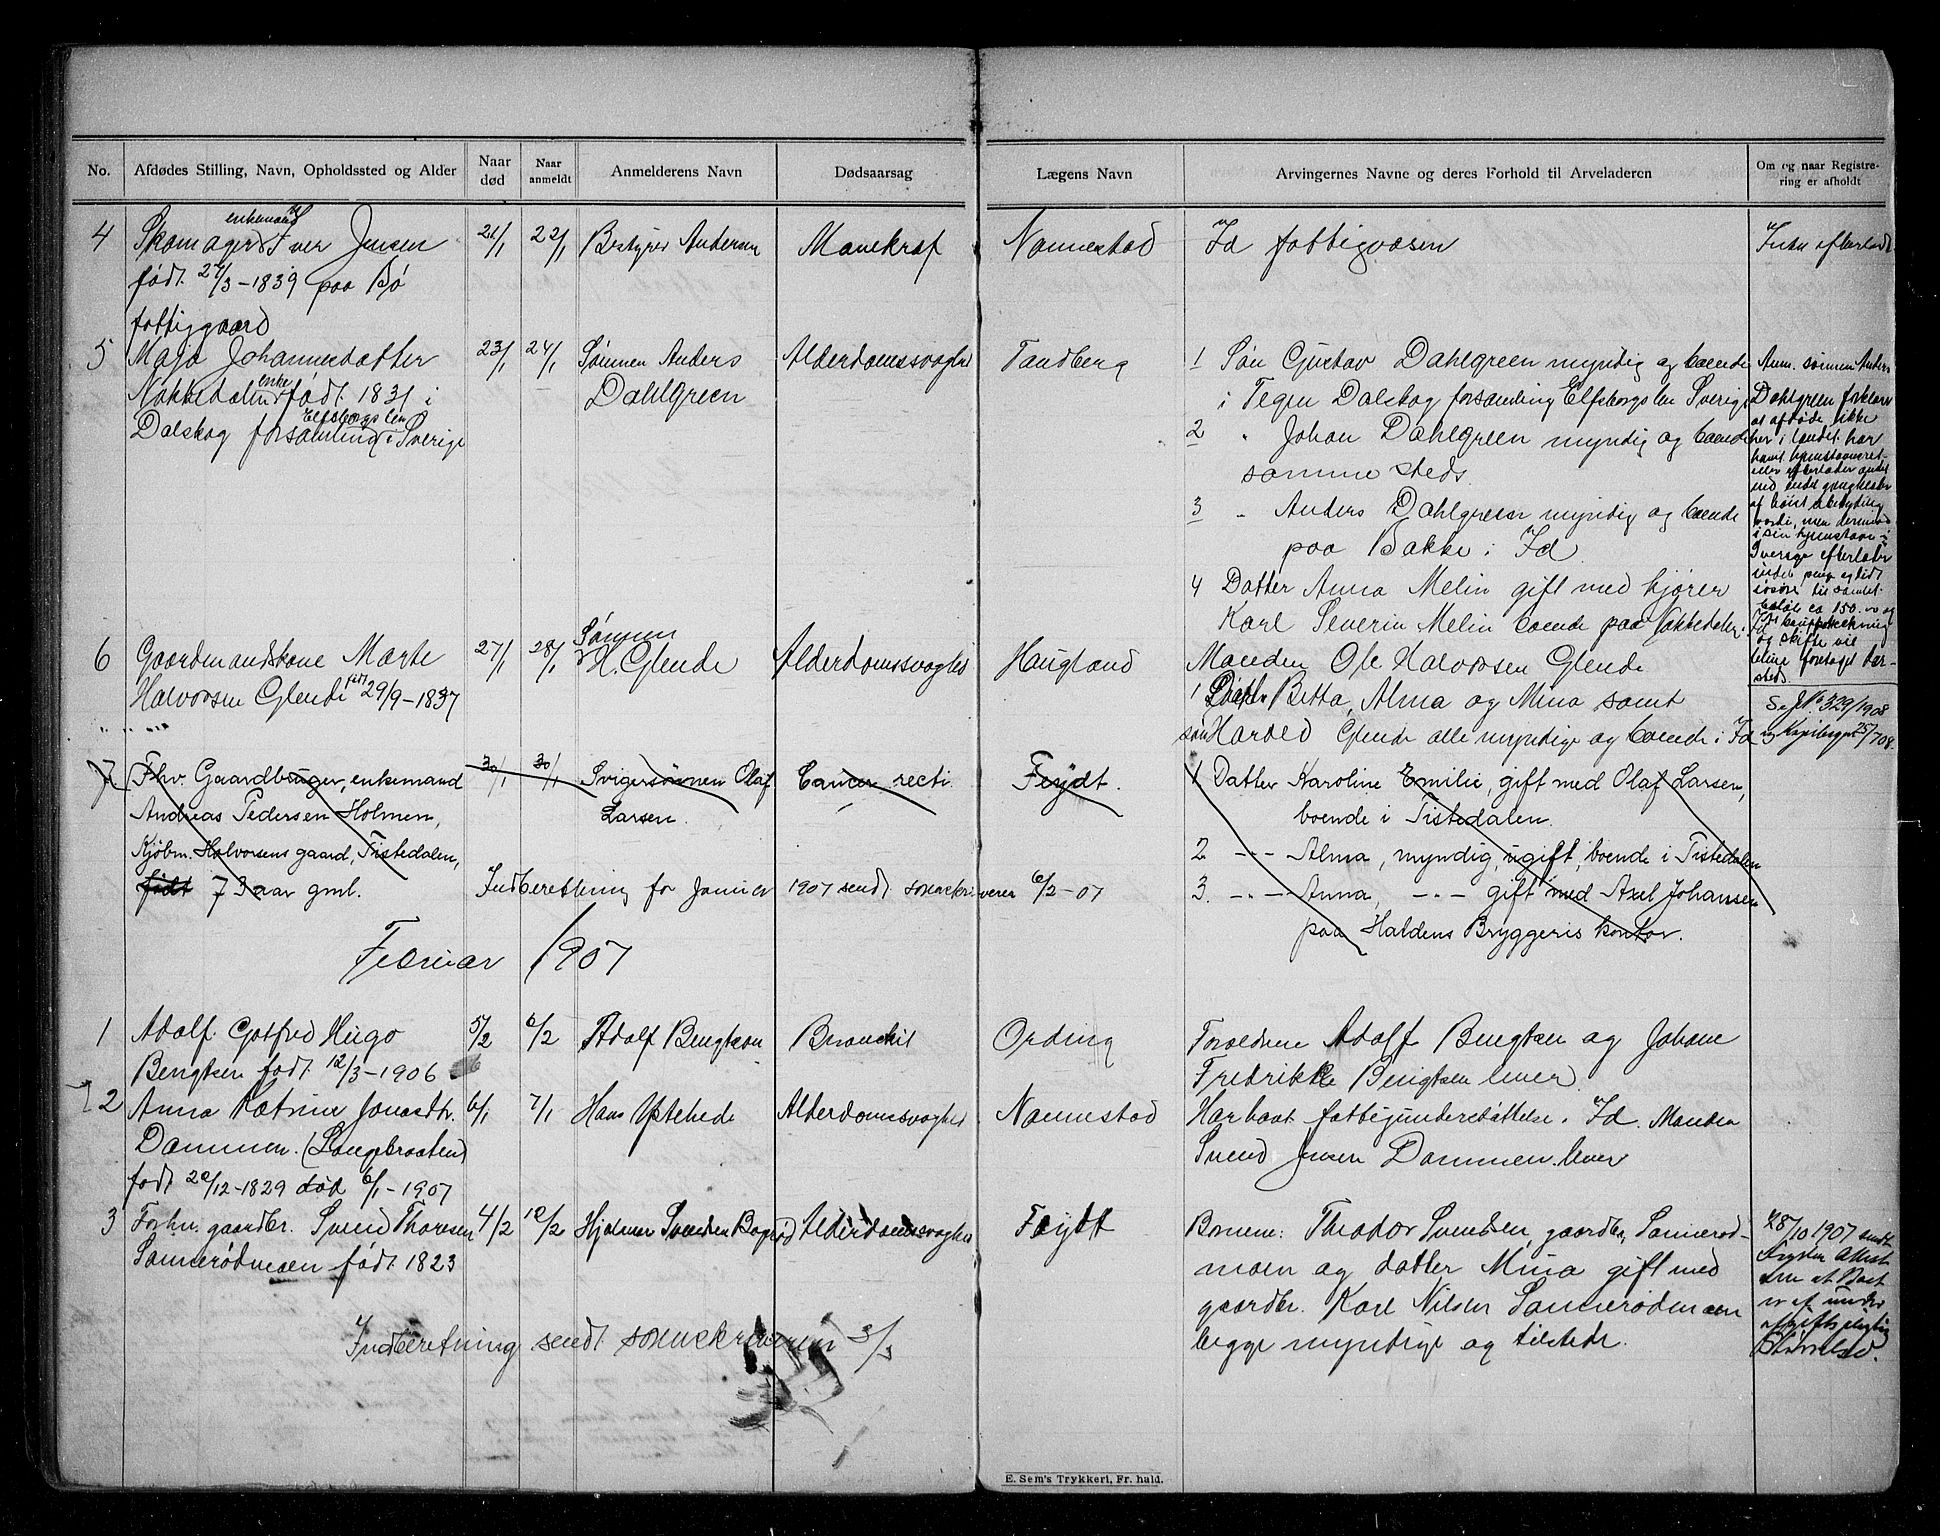 No.
Afdødes Stilling, Navn, Opholdssted og Alder
Naar død
Naar anmeldt
Anmelderens Navn
Dødsaarsag
Lægens Navn
Arvingernes Navne og deres Forhold til Arveladeren
Om og naar Registrering er afholdt
4 Skomager enkemand Iver Jensen 21/1 22/1 Bestyrer Andersen Mavekræf Nannestad Id fattigvæsen Intet efterladt
født 27/3-1839 paa Bø
fattiggaard
5 Maja Johannesdatter 23/1 24/1 Sønnen Anders Alderdomssvaghed Tandberg 1 Søn Gustav Dahlgreen myndig og boende
Nakkedalen enke født 1831 i Dahlgreen i Tegen Dalskog forsamling Elfsborgs len Sverige
Dalskog forsamling Elfsborgs len i Sverige 2 " Johan Dahlgreen myndig og boende
samme steds
3 " Anders Dahlgreen myndig og boende
paa Bakke i Id
4 Datter Anna Melin gift med kjører
Karl Severin Melin boende paa Nakkedalen i Id
Anm. sønnen Anders
Dahlgreen forklarer
at afdøde ikke
her i landet har
havt hjemstavnsret
eller efterlader andet
end endel gangklær
af høist ubetydelig
værdi, men derimod
i sin hjemstavn i
Sverige efterlader
endel penge og lidt
løsøre til samlet
beløb ca 150. og
at bouppteckning
og skifte vil
blive foretaget der-
steds.
6 Gaardmandskone Marte 27/1 28/1 Sønnen H. Glende Alderdomssvaghed Haugland Manden Ole Halvorsen Glende
Halvorsen Glende født 29/9-1837 1 Døtre Betta, Alma og Mina samt
søn Harald Glende alle myndige og boende i Id
Se J No 329/1908
og Kopibogen 25/7 08.
7 Fhv. Gaardbruger, enkemand 30/1 30/1 Svigersønnen Olaf Cancer recti Feydt. 1 Datter Karoline Emilie, gift med Olaf Larsen,
Andreas Pedersen Holmen, Larsen. boende i Tistedalen.
Kjøbm. Halvorsens gaard, Tistedalen, 2 --- Alma, myndig, ugift, boende i Tistedalen
født 73 aar gml. Indberetning for Januar 1907 sendt sorenskriveren 6/2-07 3. --- Anna, --- gift med Axel Johansen
paa Haldens Bryggeris kontor.
Februar 1907
1 Adolf Gotfred Hugo 5/2 6/2 Adolf Bengtsen Bronchit Ording Forældrene Adolf Bengtsen og Johane
Bengtsen født 12/3-1906 Fredrikke Bengtsen lever.
2 Anna Katrine Jonasdtr. 6/1 7/1 Hans Ystehede Alderdomssvaghed Nannestad Har havt fattigunderstøttelse i Id. Manden
Dammen. (Langebraaten) Svend Jensen Dammen lever
født 20/12-1829 død 6/1-1907
3 Forhv. gaardbr. Svend Thoresen 4/2 10/2 Hjalmar Svendsen Bagerød Alderdomssvaghed Feydt Børnene: Theodor Svendsen, gaardbr, Sannerød-
Sannerødmoen født 1823 moen og datter Mina gift med
gaardbr. Karl Nilsen Sannerødmoen
begge myndige og tilstede.
28/10 1907 sendt
at Boet
Indberetning sendt sorenskriveren 3/3
E. Sem's Trykkeri, Fr.hald.